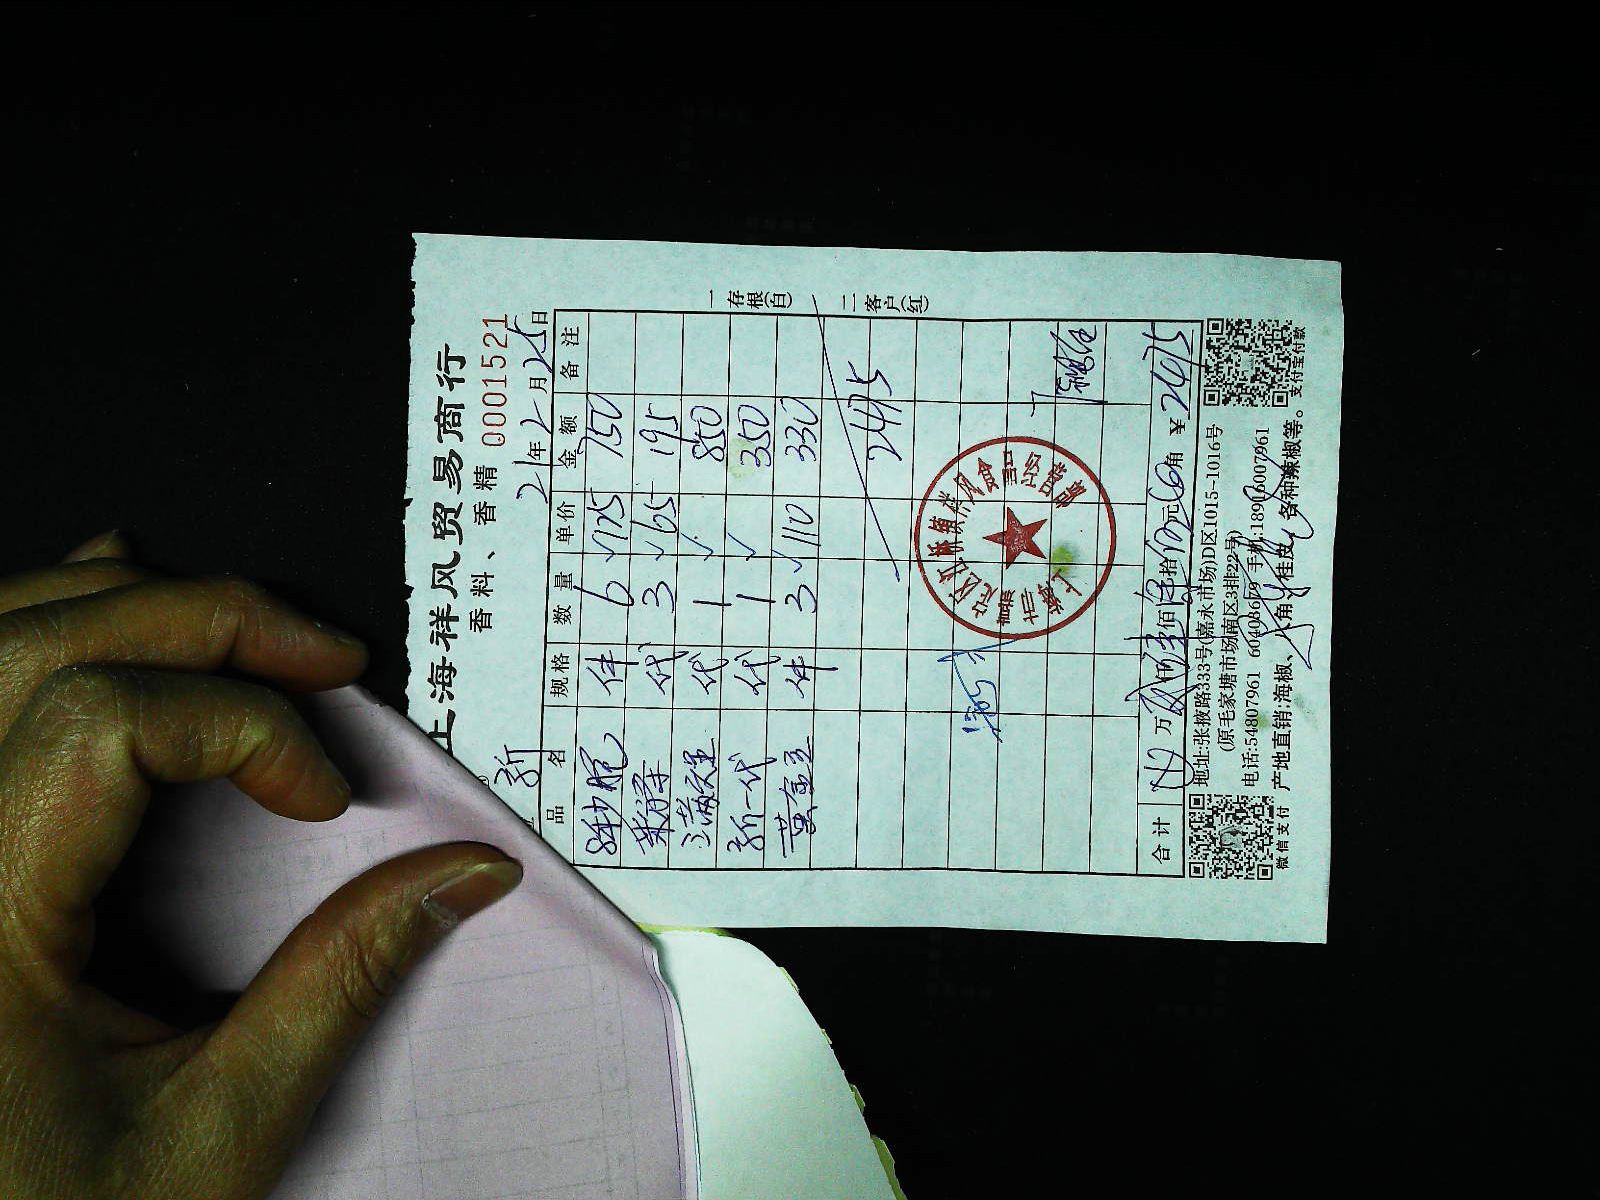 上海祥风贸易商行
香料、香精 0001521
21年2月25日
新
品名 规格 数量 单价 金额 备注
件 6 √125 750
代 3 √65 195
满天星 代 1 √ 850
新一代 代 1 √ 350
黄金豆 件 3 √110 330
2475
一存根(白)
二客户(红)
合计 万 仟 佰 拾 元 角 ¥2475
地址:张掖路333号(嘉永市场)D区1015-1016号
(原毛家塘市场南区3排22号)
电话:54807961 60408679 手机:18916007961
产地直销:海椒、八角、桂皮、各种辣椒等。
微信支付
支付宝付款